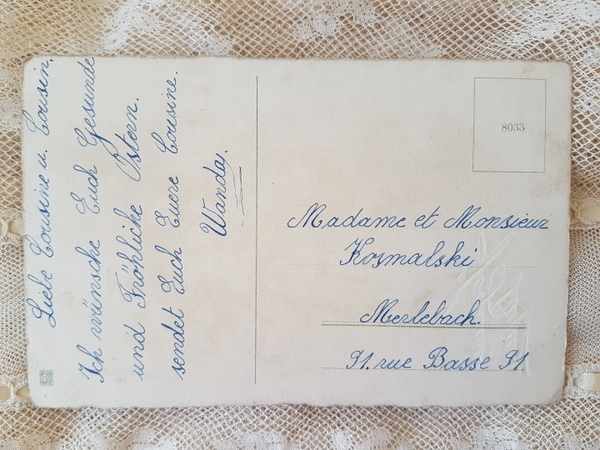 Liebe Cousine u. Cousin.
Ich wünsche Euch Gesunde
und Fröhliche Ostern.
sendet Euch Euere Cousine.
Wanda.
8033
Madame et Monsieur
Kosmalski
Merlebach.
91. rue Basse 91.